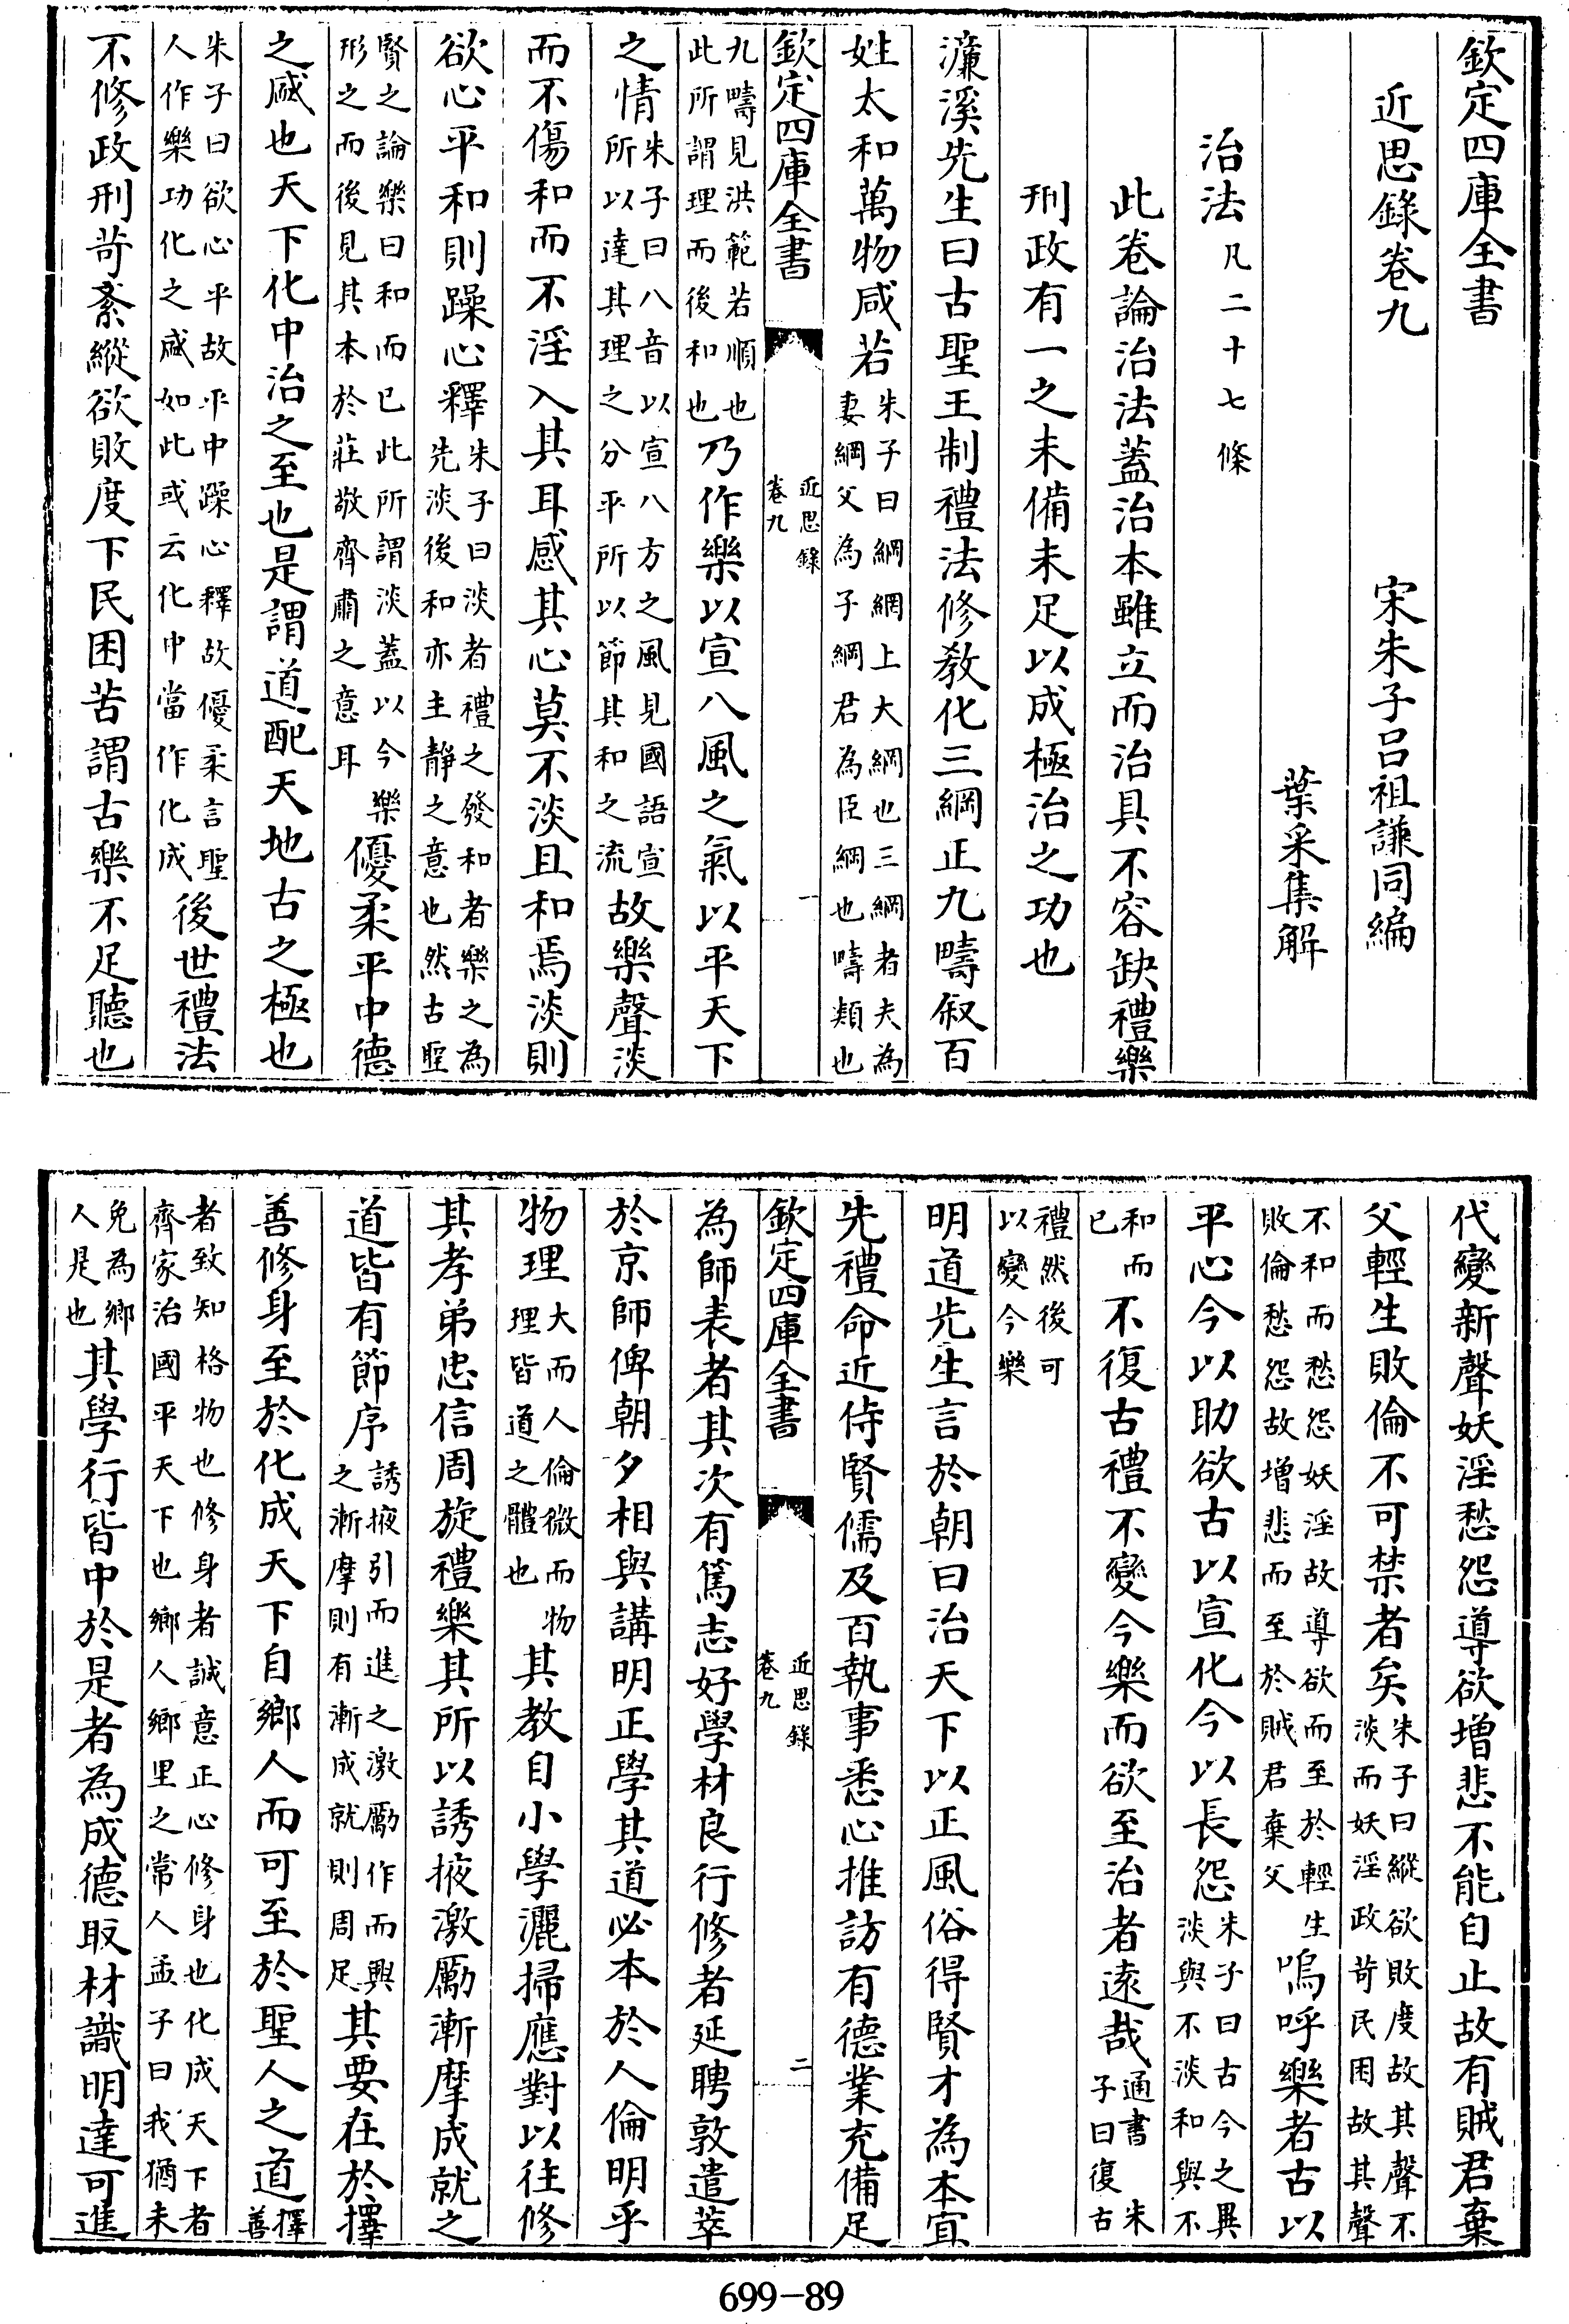 欽定四庫全書
近思錄卷九
宋朱子呂祖謙同編
葉采集解
治法凡二十七條
此卷論治法蓋治本雖立而治具不容缺禮樂
刑政有一之未備未足以成極治之功也
濂溪先生曰古聖王制禮法修教化三綱正九疇叙百
姓太和萬物咸若朱子曰綱網上大綱也三綱者夫為
妻綱父為子綱君為臣綱也疇類也
欽定四庫全書
近思錄
卷九
一
九疇見洪範若順也
此所謂理而後和也乃作樂以宣八風之氣以平天下
之情朱子曰八音以宣八方之風見國語宣
所以達其理之分平所以節其和之流故樂聲淡
而不傷和而不淫入其耳感其心莫不淡且和焉淡則
欲心平和則躁心釋朱子曰淡者禮之發和者樂之為
先淡後和亦主靜之意也然古聖
賢之論樂曰和而已此所謂淡蓋以今樂
形之而後見其本於莊敬齊肅之意耳優柔平中德
之盛也天下化中治之至也是謂道配天地古之極也
朱子曰欲心平故平中躁心釋故優柔言聖
人作樂功化之盛如此或云化中當作化成後世禮法
不修政刑苛紊縱欲敗度下民困苦謂古樂不足聽也
代變新聲妖淫愁怨導欲增悲不能自止故有賊君棄
父輕生敗倫不可禁者矣朱子曰縱欲敗度故其聲不
淡而妖淫政苛民困故其聲
不和而愁怨妖淫故導欲而至於輕生
敗倫愁怨故增悲而至於賊君棄父嗚呼樂者古以
平心今以助欲古以宣化今以長怨朱子曰古今之異
淡與不淡和與不
和而
已不復古禮不變今樂而欲至治者遠哉通書朱
子曰復古
禮然後可
以變今樂
明道先生言於朝曰治天下以正風俗得賢才為本宜
先禮命近侍賢儒及百執事悉心推訪有德業充備足
欽定四庫全書
近思錄
卷九
二
為師表者其次有篤志好學材良行修者延聘敦遣萃
於京師俾朝夕相與講明正學其道必本於人倫明乎
物理大而人倫微而物
理皆道之體也其教自小學灑掃應對以往修
其孝弟忠信周旋禮樂其所以誘掖激厲漸摩成就之
道皆有節序誘掖引而進之激勵作而興
之漸摩則有漸成就則周足其要在於擇
善修身至於化成天下自鄉人而可至於聖人之道擇
善
者致知格物也修身者誠意正心修身也化成天下者
齊家治國平天下也鄉人鄉里之常人孟子曰我猶未
免為鄉
人是也其學行皆中於是者為成德取材識明達可進
699-89